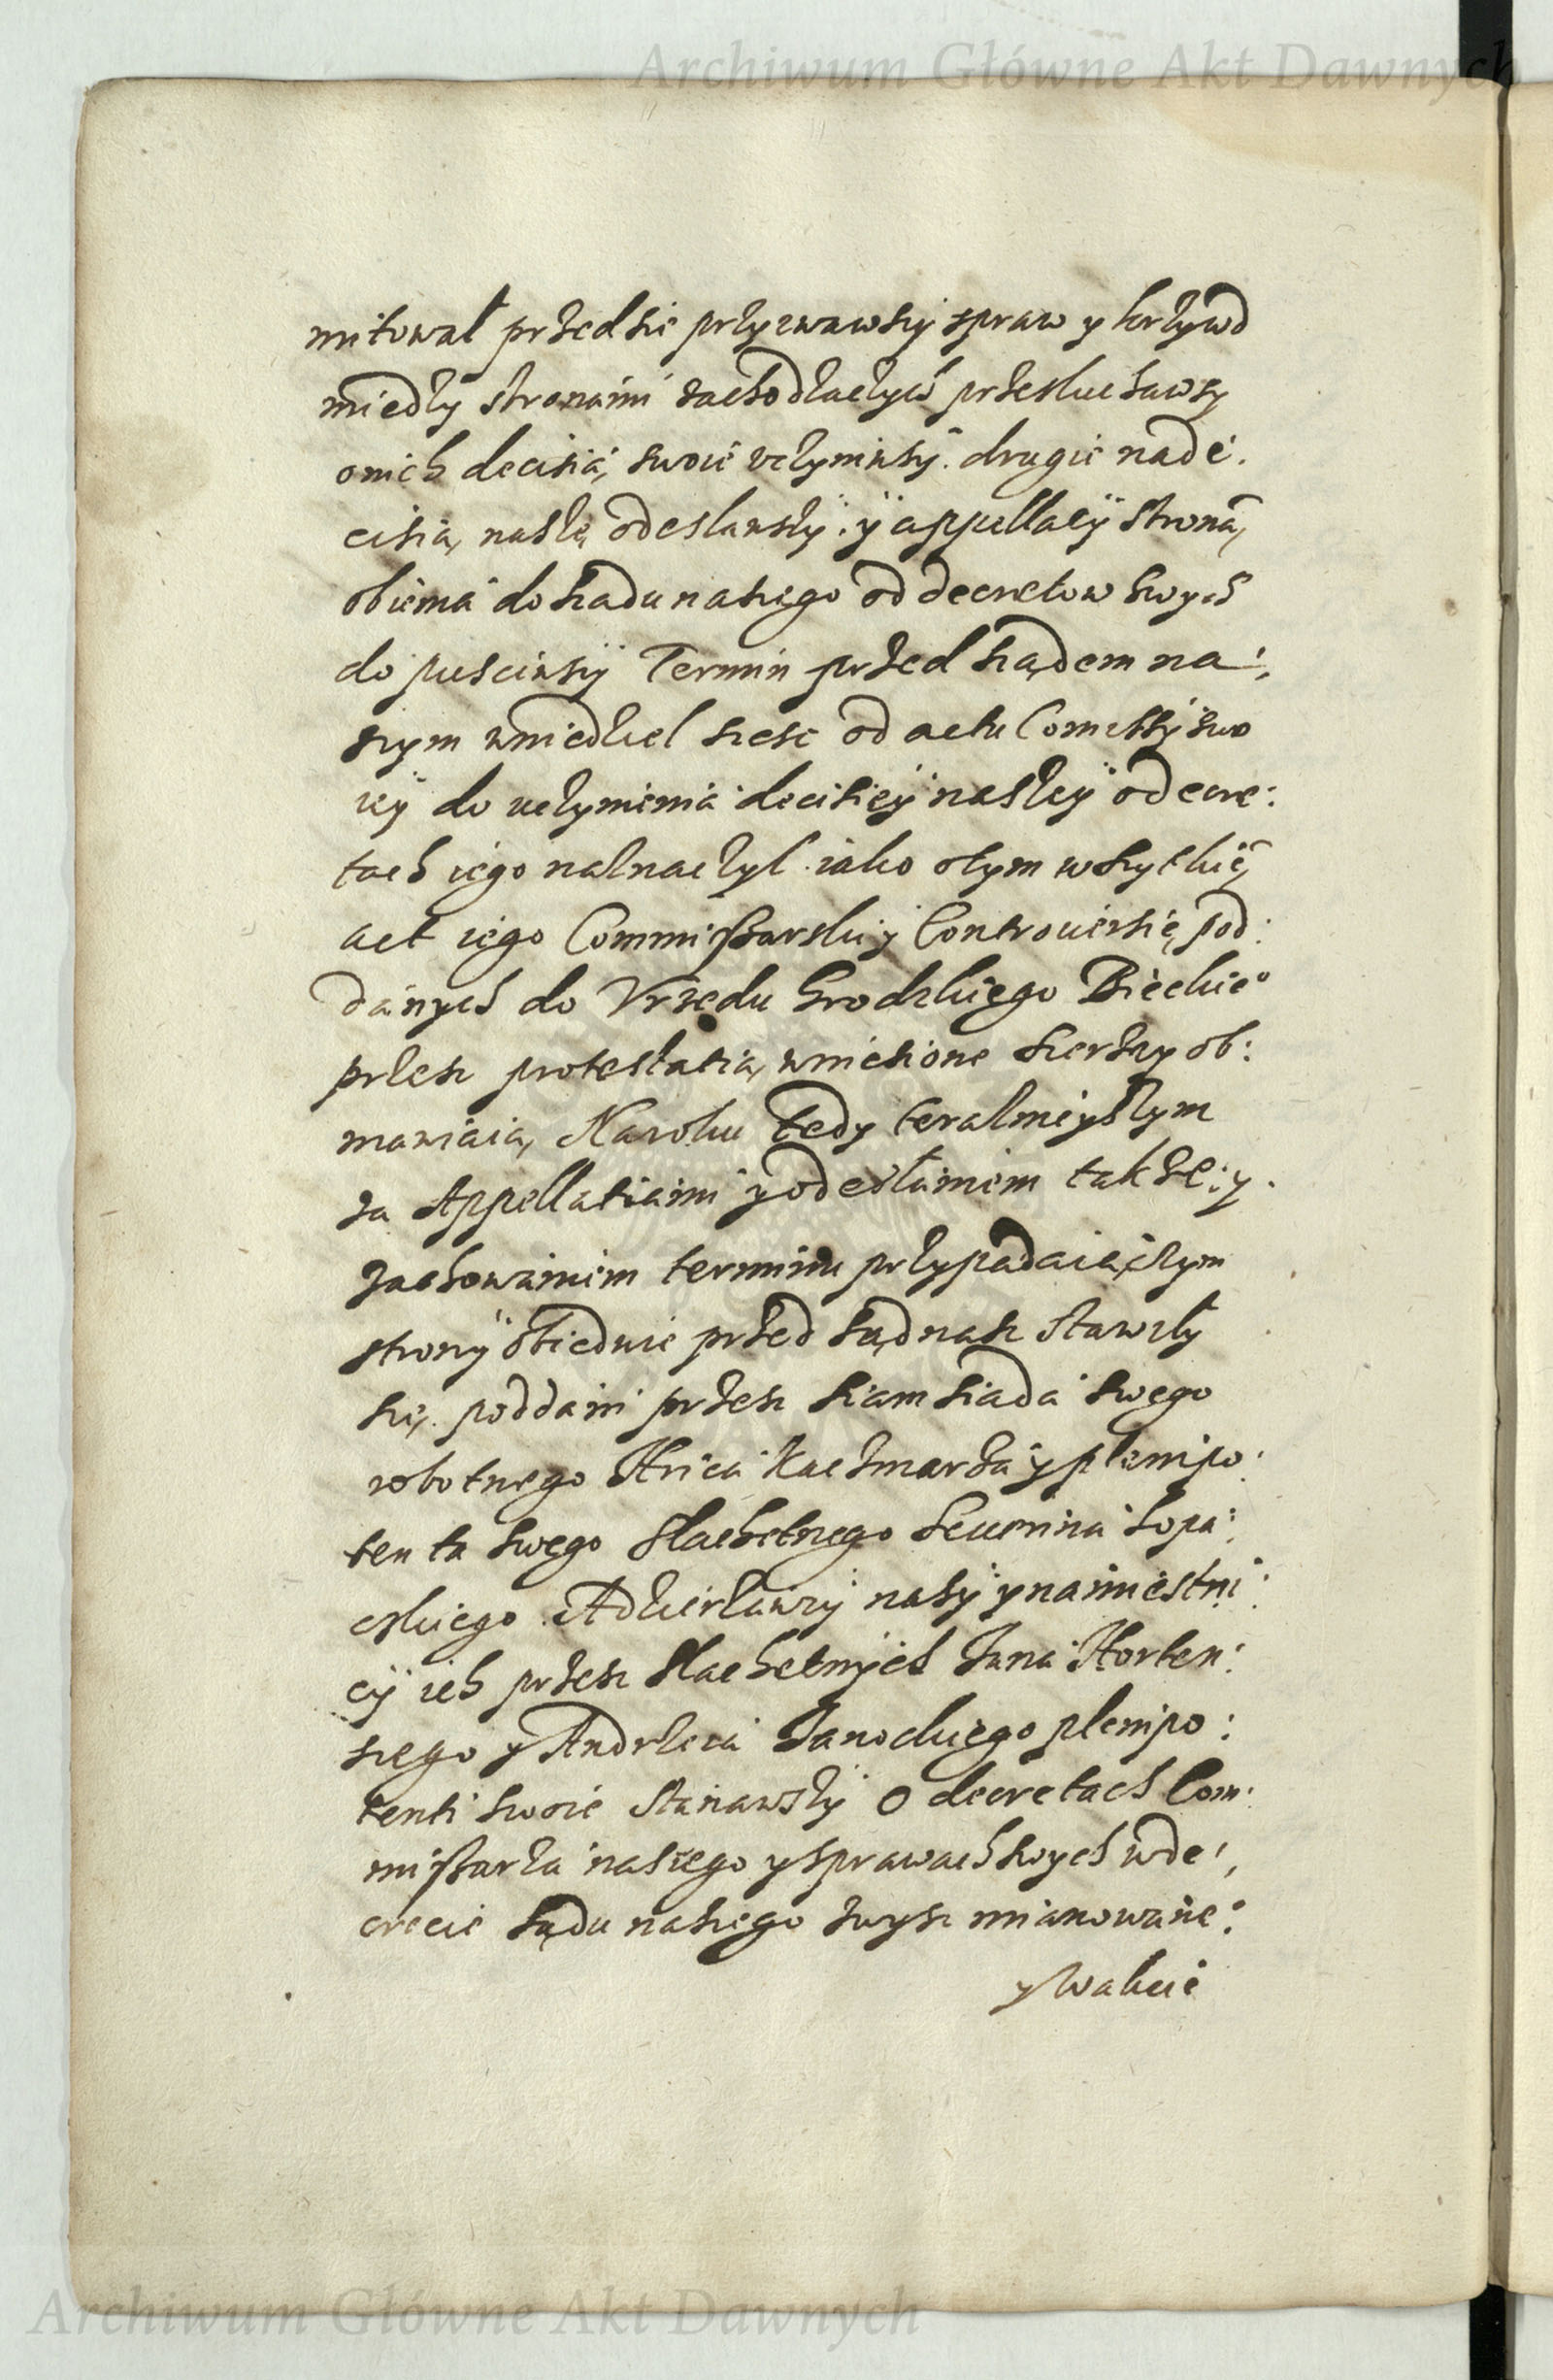 Archiwum Główne Akt Dawnych
mitował przedsie przyzwawszy spraw y krzywd
miedzy stronami zachodzaczych przesłuchawszy
onich decisią swoie vczyniwszy. drugie nade:
cisią naszę odesławszy. ÿ appellacÿ stroną
obiema do sadu naszego od decretow swych
do pusciwszÿ Termin przed sądem na:
szym wniedziel szesc od actu Comissÿ swo
ieÿ do vczynienia decisieÿ naszeÿ odecre:
tach iego naznaczyl. iako otym wszytkię
act iego Commissarski y Controuersię pod:
danych do Vrzędu Grodzkiego Bieckie°
przesz protestatią wniesione szerzey ob:
mawiaią Na roku tedy terazmeyszym
za Appellatiami y odesłaniem także y
zachowaniem terminu przypadaiączym
stronÿ obiedwie przed sąd nasz stawiły
się. poddani przesz siamsiada swego
robotnego Hrica Kaczmarza ÿ plenipo:
tenta swego Slachetnego Seueryna Łopa:
ckiego. A dzierzawcÿ naszÿ y namiestni:
cÿ ich przesz Slachetnych Jana Horten:
siego y Andrzeia Janockiego plenipo:
tenti swoie stanawszÿ O decretach Com:
missarza naszego y sprawach swych wde:
crecie sądu naszego zwysz mianowane:
y wakcie
Archiwum Główne Akt Dawnych